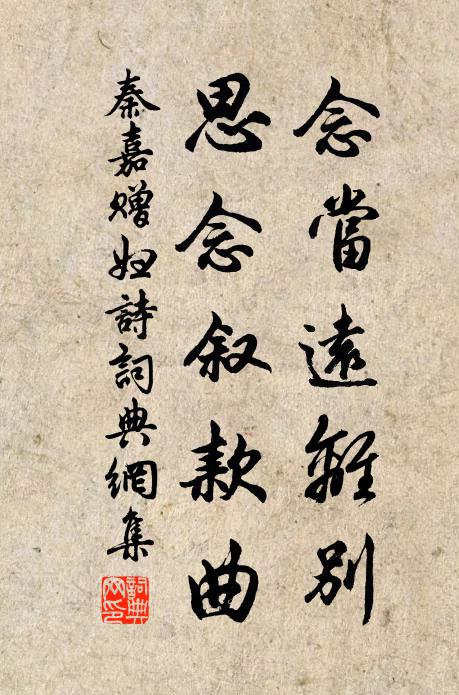 念當遠離別
思念叙款曲
秦嘉贈妇詩詞典網集
詞典网印